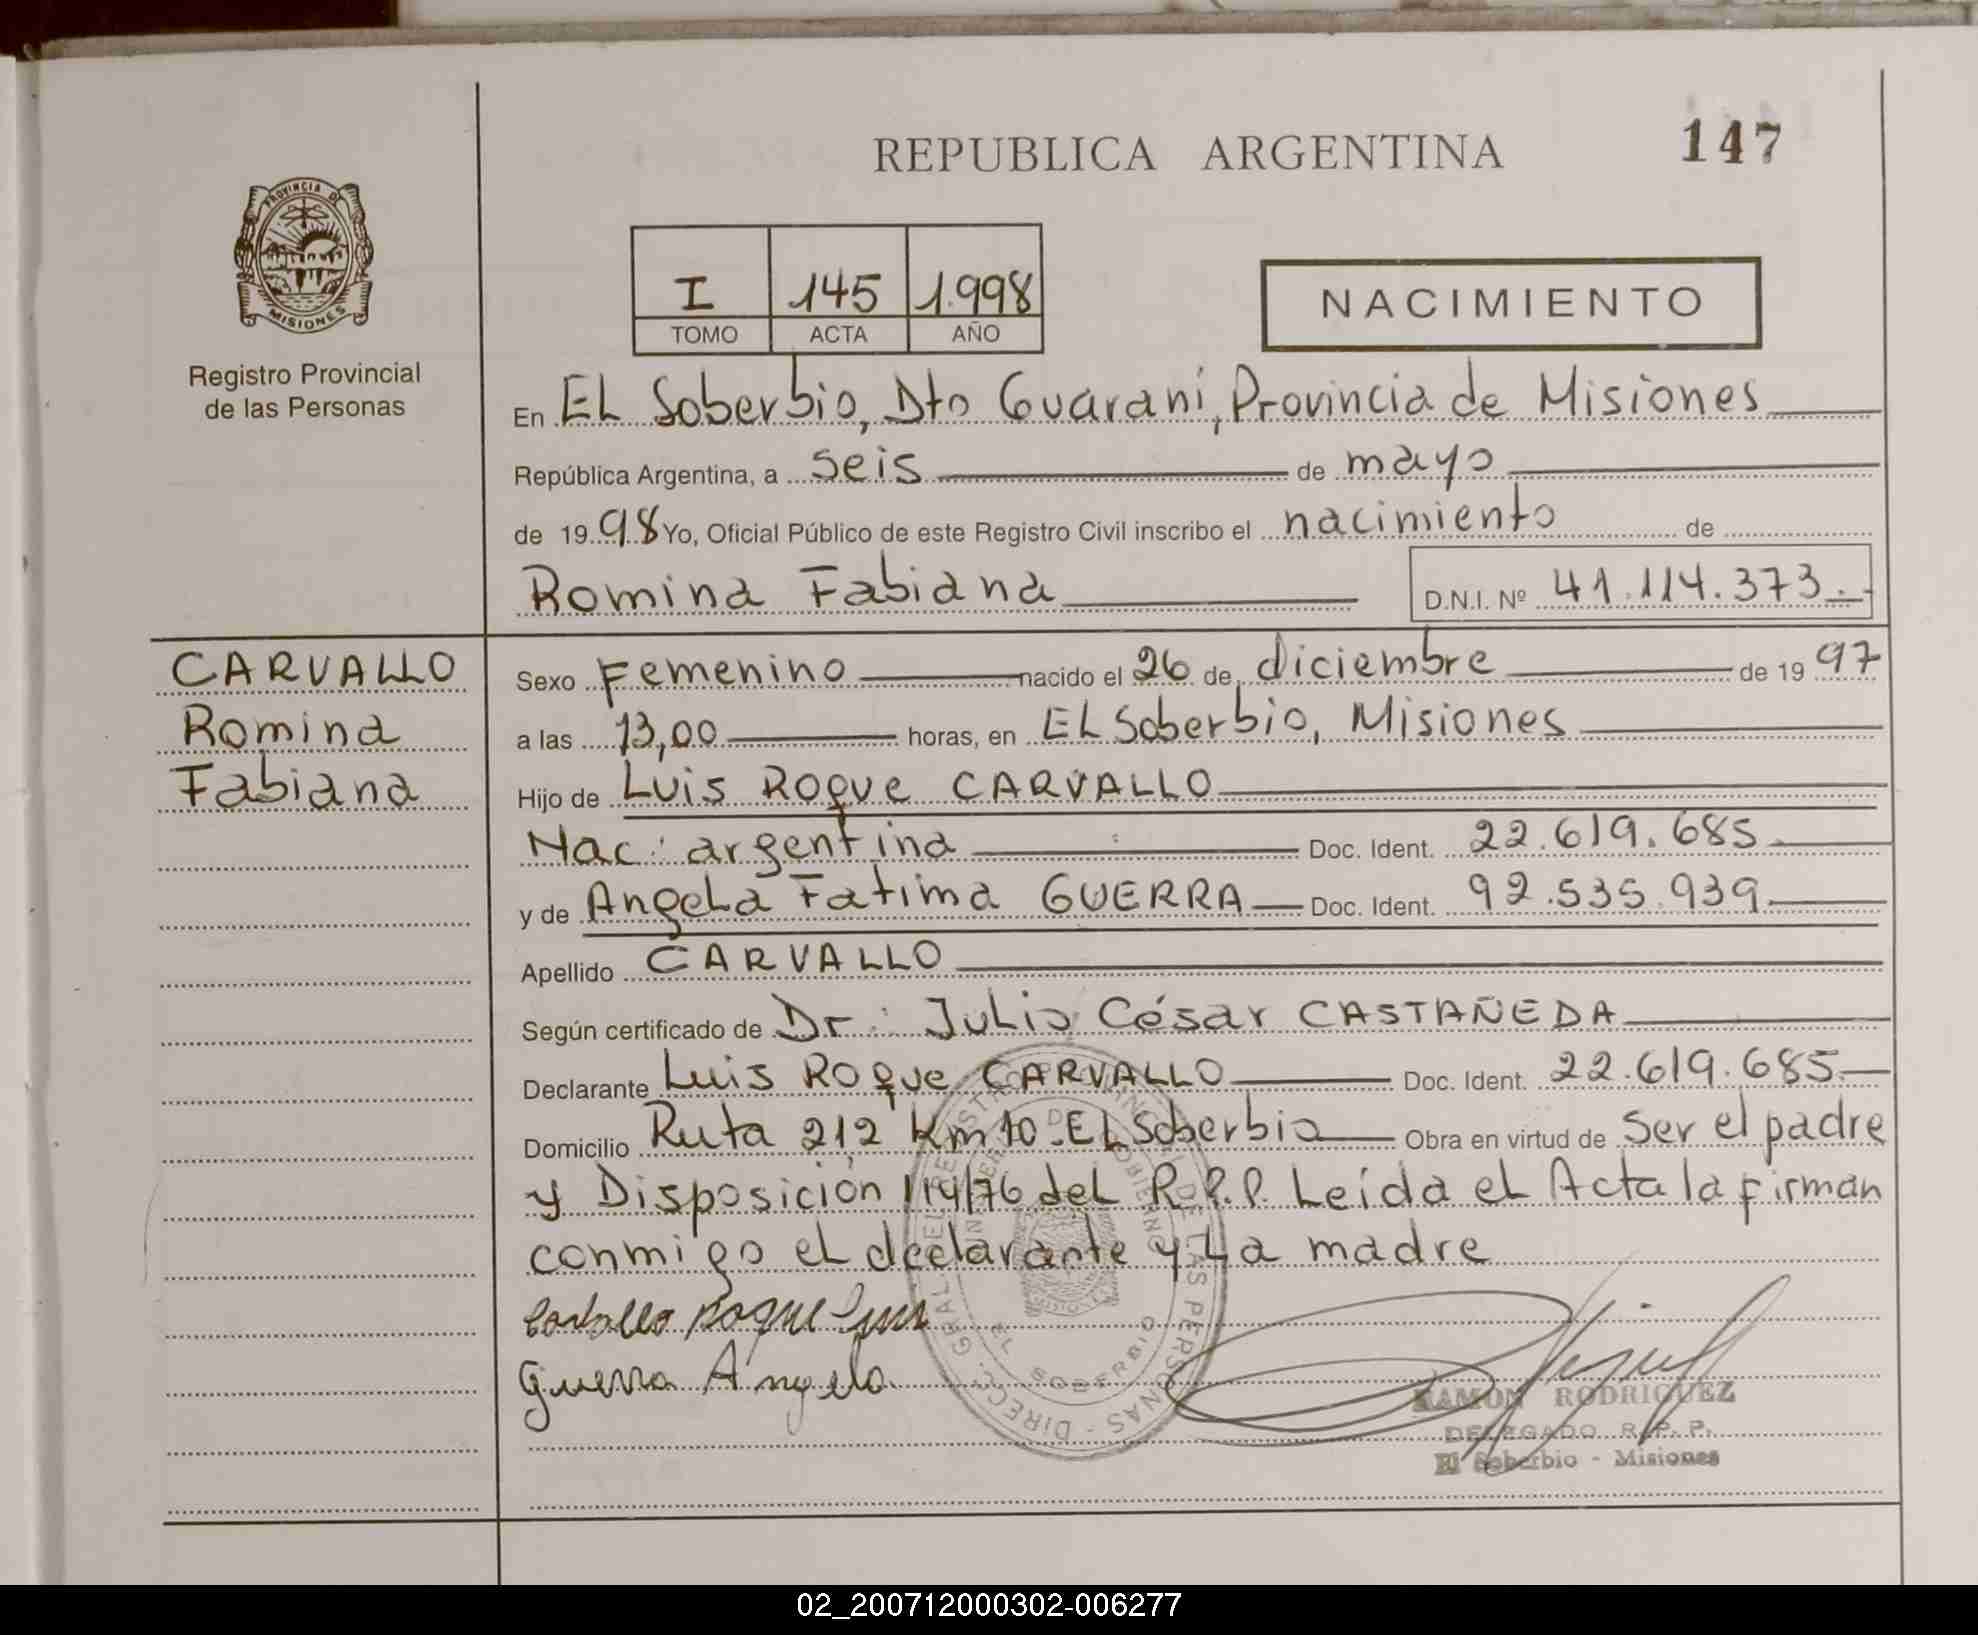 REPUBLICA ARGENTINA
147
PROVINCIA DE
MISIONES
Registro Provincial
de las Personas
I 145 1.998
TOMO ACTA AÑO
NACIMIENTO
En EL Soberbio, Dto Guaraní, Provincia de Misiones
República Argentina, a seis de mayo
de 19 98 Yo, Oficial Público de este Registro Civil inscribo el nacimiento de
Romina Fabiana
D.N.I. Nº 41.114.373.-
CARVALLO
Romina
Fabiana
Sexo Femenino nacido el 26 de diciembre de 19 97
a las 13,00 horas, en EL Soberbio, Misiones
Hijo de Luis Roque CARVALLO
Nac: argentina Doc. Ident. 22.619.685
y de Angela Fatima GUERRA Doc. Ident. 92.535.939
Apellido CARVALLO
Según certificado de Dr: Julio César CASTAÑEDA
Declarante Luis Roque CARVALLO Doc. Ident. 22.619.685
Domicilio Ruta 212 Km 10-EL Soberbio Obra en virtud de ser el padre
y Disposición 114/76 del R.P.P. Leída el Acta la firman
conmigo el declarante y La madre
Roque Luis
Guerra Angela
DIRECC. GRAL. DEL REGISTRO PROVINCIAL DE LAS PERSONAS
EL SOBERBIO
RAMON RODRIGUEZ
DELEGADO R. P. P.
El Soberbio - Misiones
02_200712000302-006277